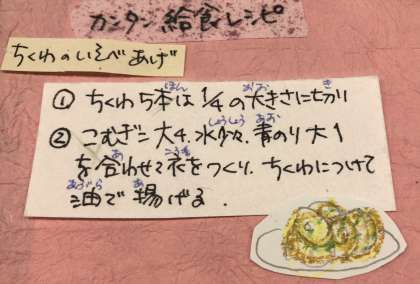 カンタン給食レシピ
ちくわのいそべあげ
① ちくわ5本は1/4の大きさに切り
② こむぎこ大4、水少々、青のり大1
を合わせて衣をつくり、ちくわにつけて
油で揚げる。